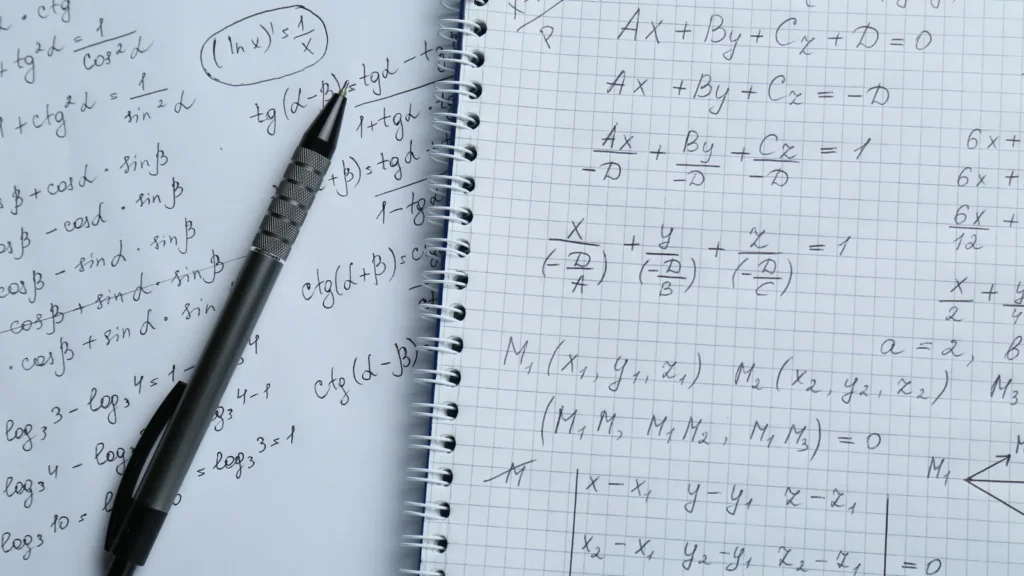 · ctg
+ tg²α = 1/cos²α
(ln x)' = 1/x
1 + ctg²α = 1/sin²α
tg(α-β) = tgα - tg
1 + tgα ·
β + cosα · sinβ
β) = tgα
1 - tgα
cosβ - cosα · sinβ
cosβ - sinα · sinβ
ctg(α+β) = c
cosβ + sinα · sinβ
· cosβ + sinα · sin
ctg(α-β)
log₃3 - log₃4 = 1 - 4
log₃4 - log 4-1
log₃10 = = log₃3 = 1
Ax + By + Cz + D = 0
Ax + By + Cz = -D
Ax/-D + By/-D + Cz/-D = 1
x/(-D/A) + y/(-D/B) + z/(-D/C) = 1
6x +
6x +
6x/12
x/2 + y/4
a = 2, b
M₁(x₁, y₁, z₁) M₂(x₂, y₂, z₂) M₃
(M₁M, M₁M₂, M₁M₃) = 0
M
M₁
x - x₁ y - y₁ z - z₁
x₂ - x₁ y₂ - y₁ z₂ - z₁ = 0